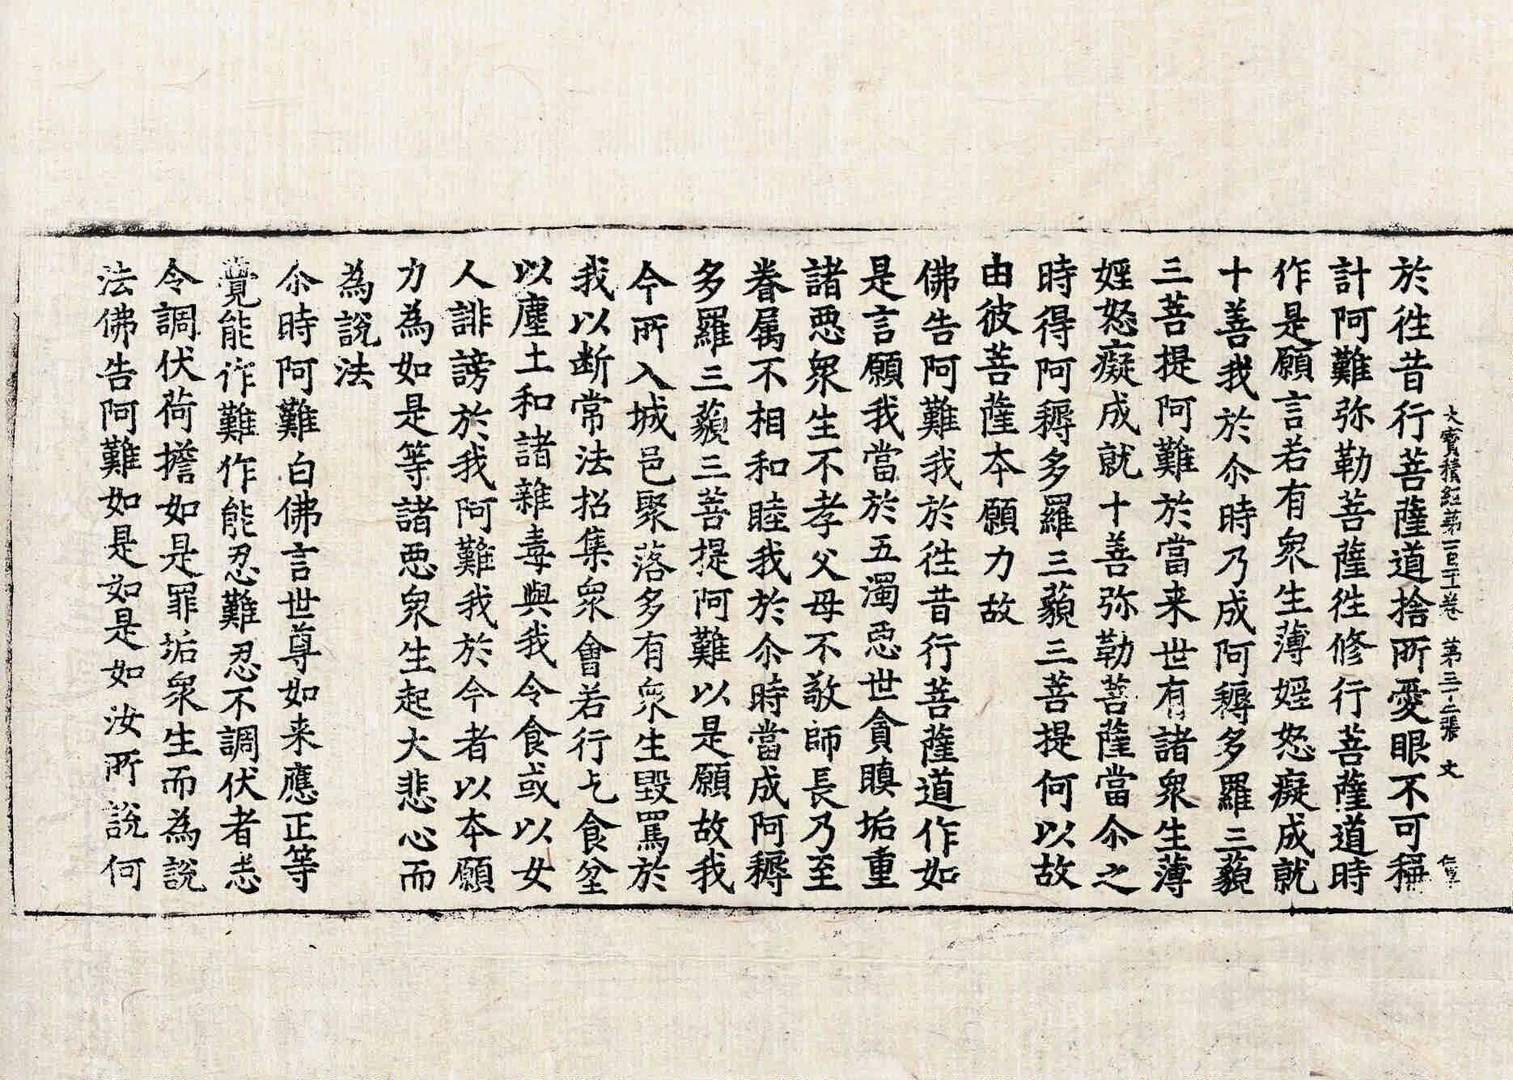 大寶積經第一百十一卷 第三十二張 文
於往昔行菩薩道捨所愛眼不可稱
計阿難弥勒菩薩往修行菩薩道時
作是願言若有衆生薄婬怒癡成就
十善我於尒時乃成阿耨多羅三藐
三菩提阿難於當来世有諸衆生薄
婬怒癡成就十善弥勒菩薩當尒之
時得阿耨多羅三藐三菩提何以故
由彼菩薩夲願力故
佛告阿難我於往昔行菩薩道作如
是言願我當於五濁惡世貪瞋垢重
諸惡衆生不孝父母不敬師長乃至
眷属不相和睦我於尒時當成阿耨
多羅三藐三菩提阿難以是願故我
今所入城邑聚落多有衆生毀罵於
我以断常法招集衆會若行乞食坌
以塵土和諸雜毒與我令食或以女
人誹謗於我阿難我於今者以夲願
力為如是等諸惡衆生起大悲心而
為說法
尒時阿難白佛言世尊如来應正等
覺能作難作能忍難忍不調伏者悉
令調伏荷擔如是罪垢衆生而為說
法佛告阿難如是如是如汝所說何